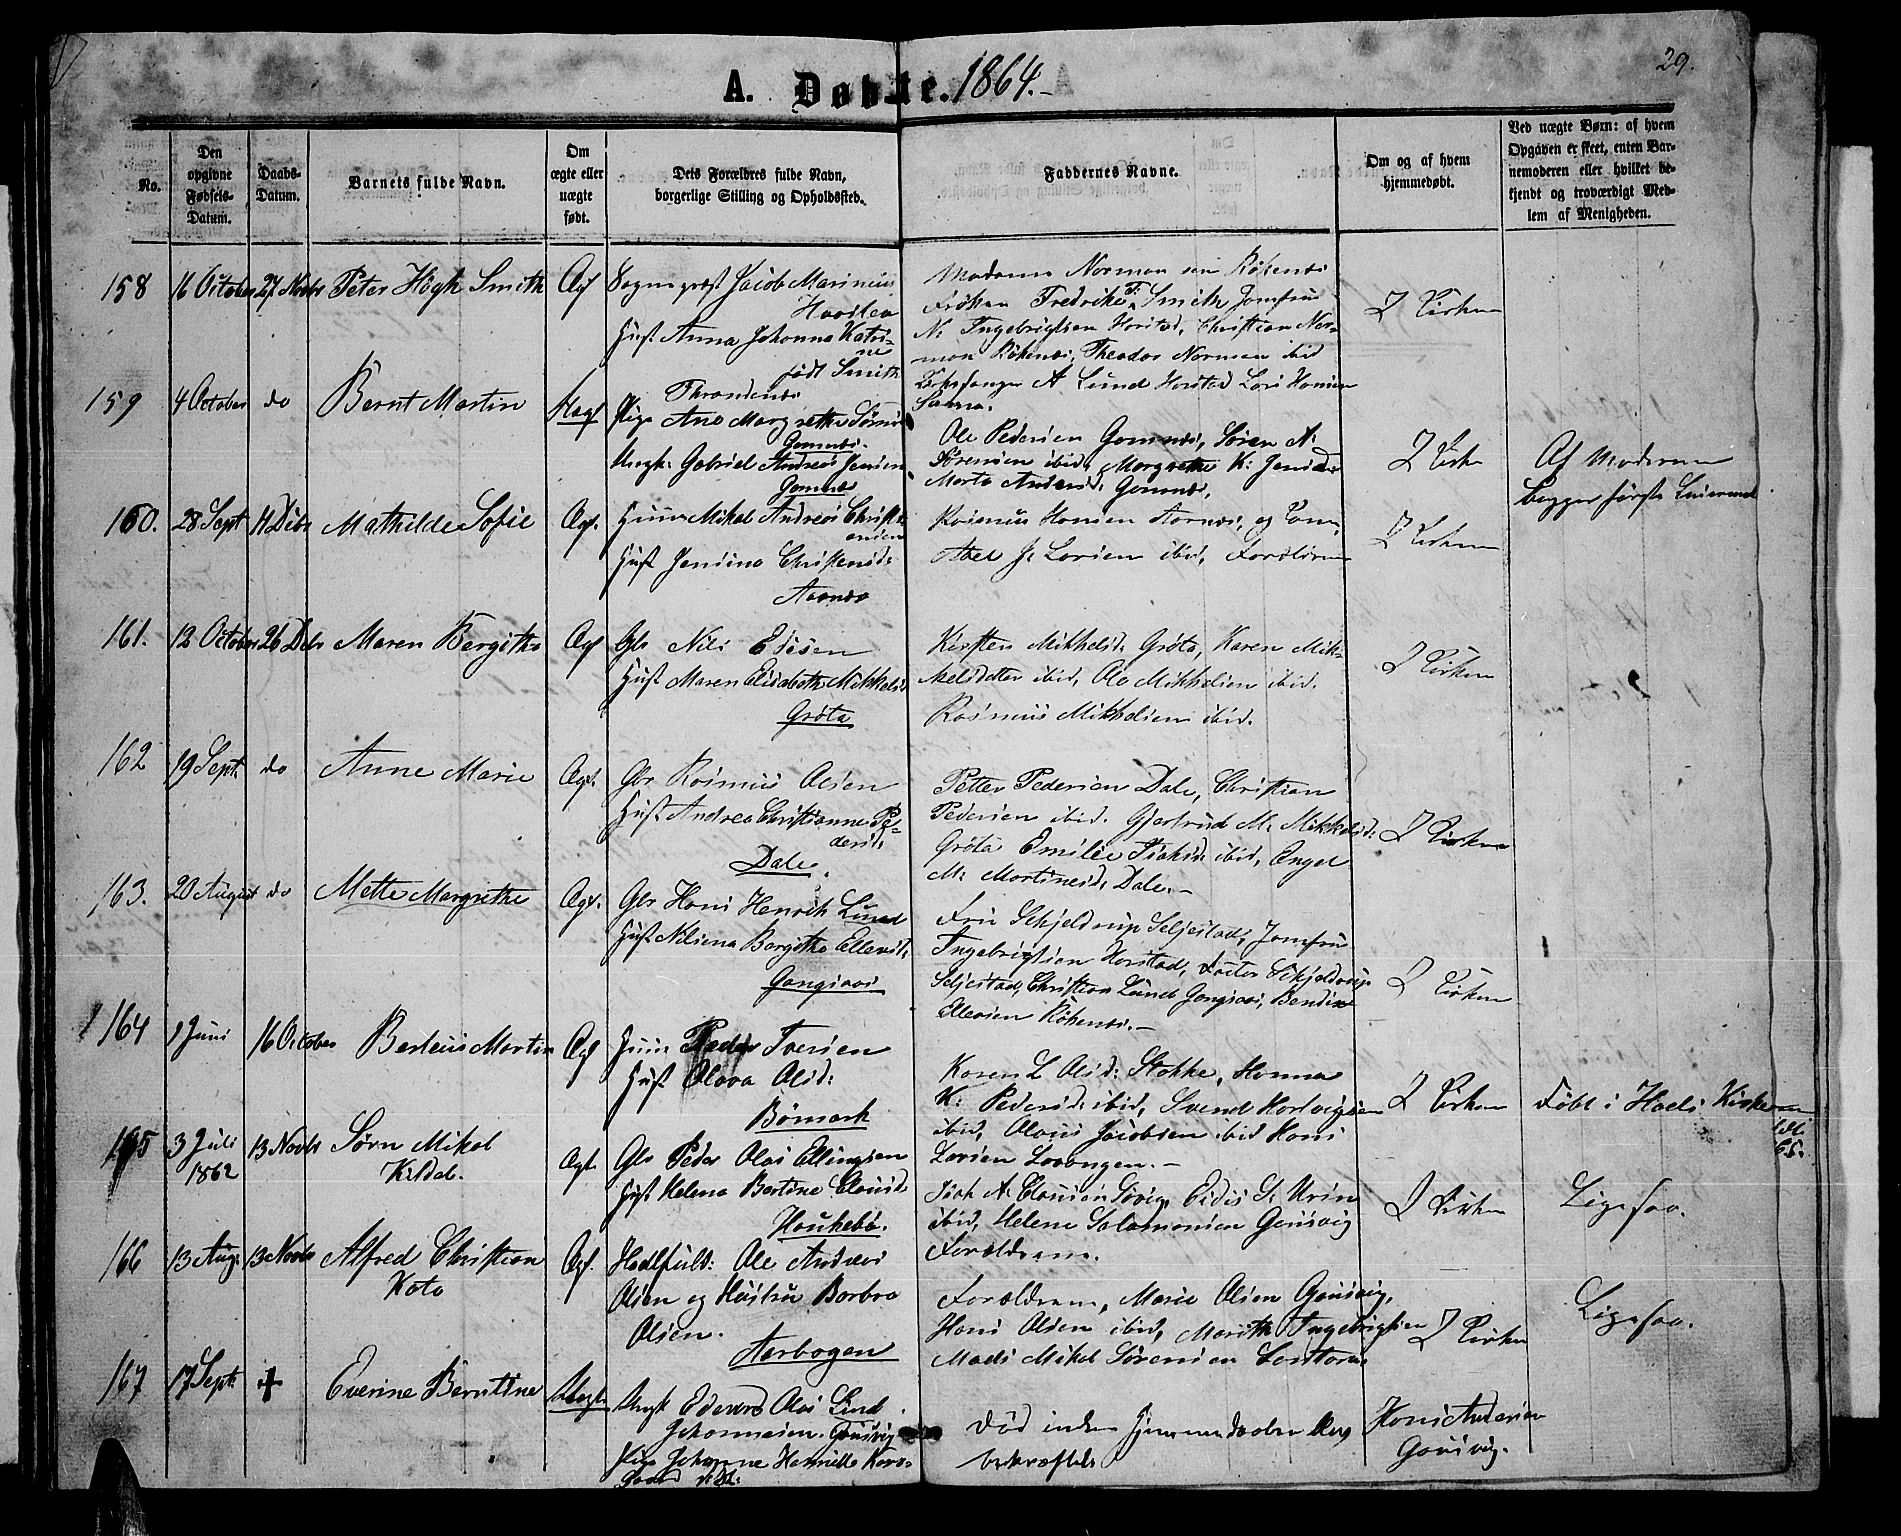 29.
A. Døbte. 1864.-
No.
Den opgivne Fødsels-Datum.
Daabs-Datum.
Barnets fulde Navn.
Om ægte eller uægte født.
Dets Forældres fulde Navn, borgerlige Stilling og Opholdssted.
Faddernes Navne.
Om og af hvem hjemmedøbt.
Ved uægte Børn: af hvem Opgaven er skeet, enten Barnemoderen eller hvilket bekjendt og troværdigt Medlem af Menigheden.
158 16 October 27 Novbr Peter Høgh Smith Ægt
Sogneprest Jacob Marinius
Hust Anna Johanna Katri-
ne
født Smith
Throndenæs
Madame Norman
Frøken Fredrike F: Smith Jomfru
N: Ingebrigtsen Horstad, Christian Nor-
man Røkenæs, Theodor Norman ibid
A Lund Horstad
I Kirken
159 4 October do Bernt Martin Uægt
Pige Ane Margrethe
Gamnæs.
Ungk: Gabriel Andreas Jensen
Gamnæs
Ole Pedersen Gamnæs, Søren A:
Sørensen ibid, Margrethe K: Jensd:
Marta Andersd: Gamnæs.
I Kirken
Af Moderen
begges første Leiermaal
160. 28 Sept 11 Decbr Mathilde Sofie Ægt.
Huusm Mikal Andreas Christi-
ansen
Hust Jensine Christensd:
Aarnæs
Rasmus Hansen Aarnæs, og Kone,
Abel J: Larsen ibid, Forældrene
I Kirken
161. 12 October 26 Decbr Maren Bergithe Ægt
Gbr Nils Edisen
Hust Maren Elisabeth Mikkelsd:
Grøta
Kirsten Mikkelsd: Grøta, Karen Mik-
kelsdatter ibid, Ole Mikkelsen ibid.
Rasmus Mikkelsen ibid.
I Kirken
162 19 Sept. do Anne Marie Ægt.
Gbr Rasmus Olsen
Hust Andrea Christianne Pe-
dersd:
Dale.
Petter Pedersen Dale, Christian
Pedersen ibid. Gjertrud M: Mikkelsd:
Grøta Emilie Isaksd: ibid, Engel
M: Martinesd: Dale.-
I Kirken
163. 20 August do Mette Margrethe Ægt.
Gbr Hans Henrik Lund
Hust Nilsina Bergitha Ellevsd:
Gangsaas
Fru Schjeldrup Seljestad, Jomfru
Ingebrigtsen Horstad, Doctor Schjeldrup
Seljestad, Christian Lund Gangsaas, Bendix
Ellevsen Røkenæs.-
I Kirken
164 1 Juni 16 October Berteus Martin Ægt
Huusm Peder Iversen
Hust Olava Olsd:
Bømark
Karen L Olsd: Stokke, Hanna
K: Pedersd: ibid, Svend Hartvigsen
ibid, Olaus Jacobsen ibid Hans
Larsen Lavangen.-
I Kirken
Føbt i Hads Kirke
165 3 Juli 1862 13 Novbr Sørn Mikal
Kildal.
Ægt.
Gbr Peder Olai Ellingsen
Hust Helena Bertine Clausd:
Haukebø.
Isak A: Clausen Sørvig, Eidis S:
ibid, Helene Salamonsen Gausvig
Forældrene.
I Kirken
Ligesaa.
166 13 Aug: 13 Novbr Alfred Christian
Kato
Ægt.
Ole Andreas
Olsen og Hustru Barbra
Olsen.
Aarbogen
Forældrene, Marie Olsen Gausvig,
Hans Olsen ibid, Marith Ingebrigtsen
Mads Mikal Sørensen
I Kirken
Ligesaa.
167 17 Sept. + Everine Berntine Uægt.
Ungk Edevard Olai Lind
Johannesen. Gausvig
Pige Johanne Henrikke Kors-
gaard
Død inden Hjemmedaaben blev
bekræftet
Hans Andersen
Gausvig.